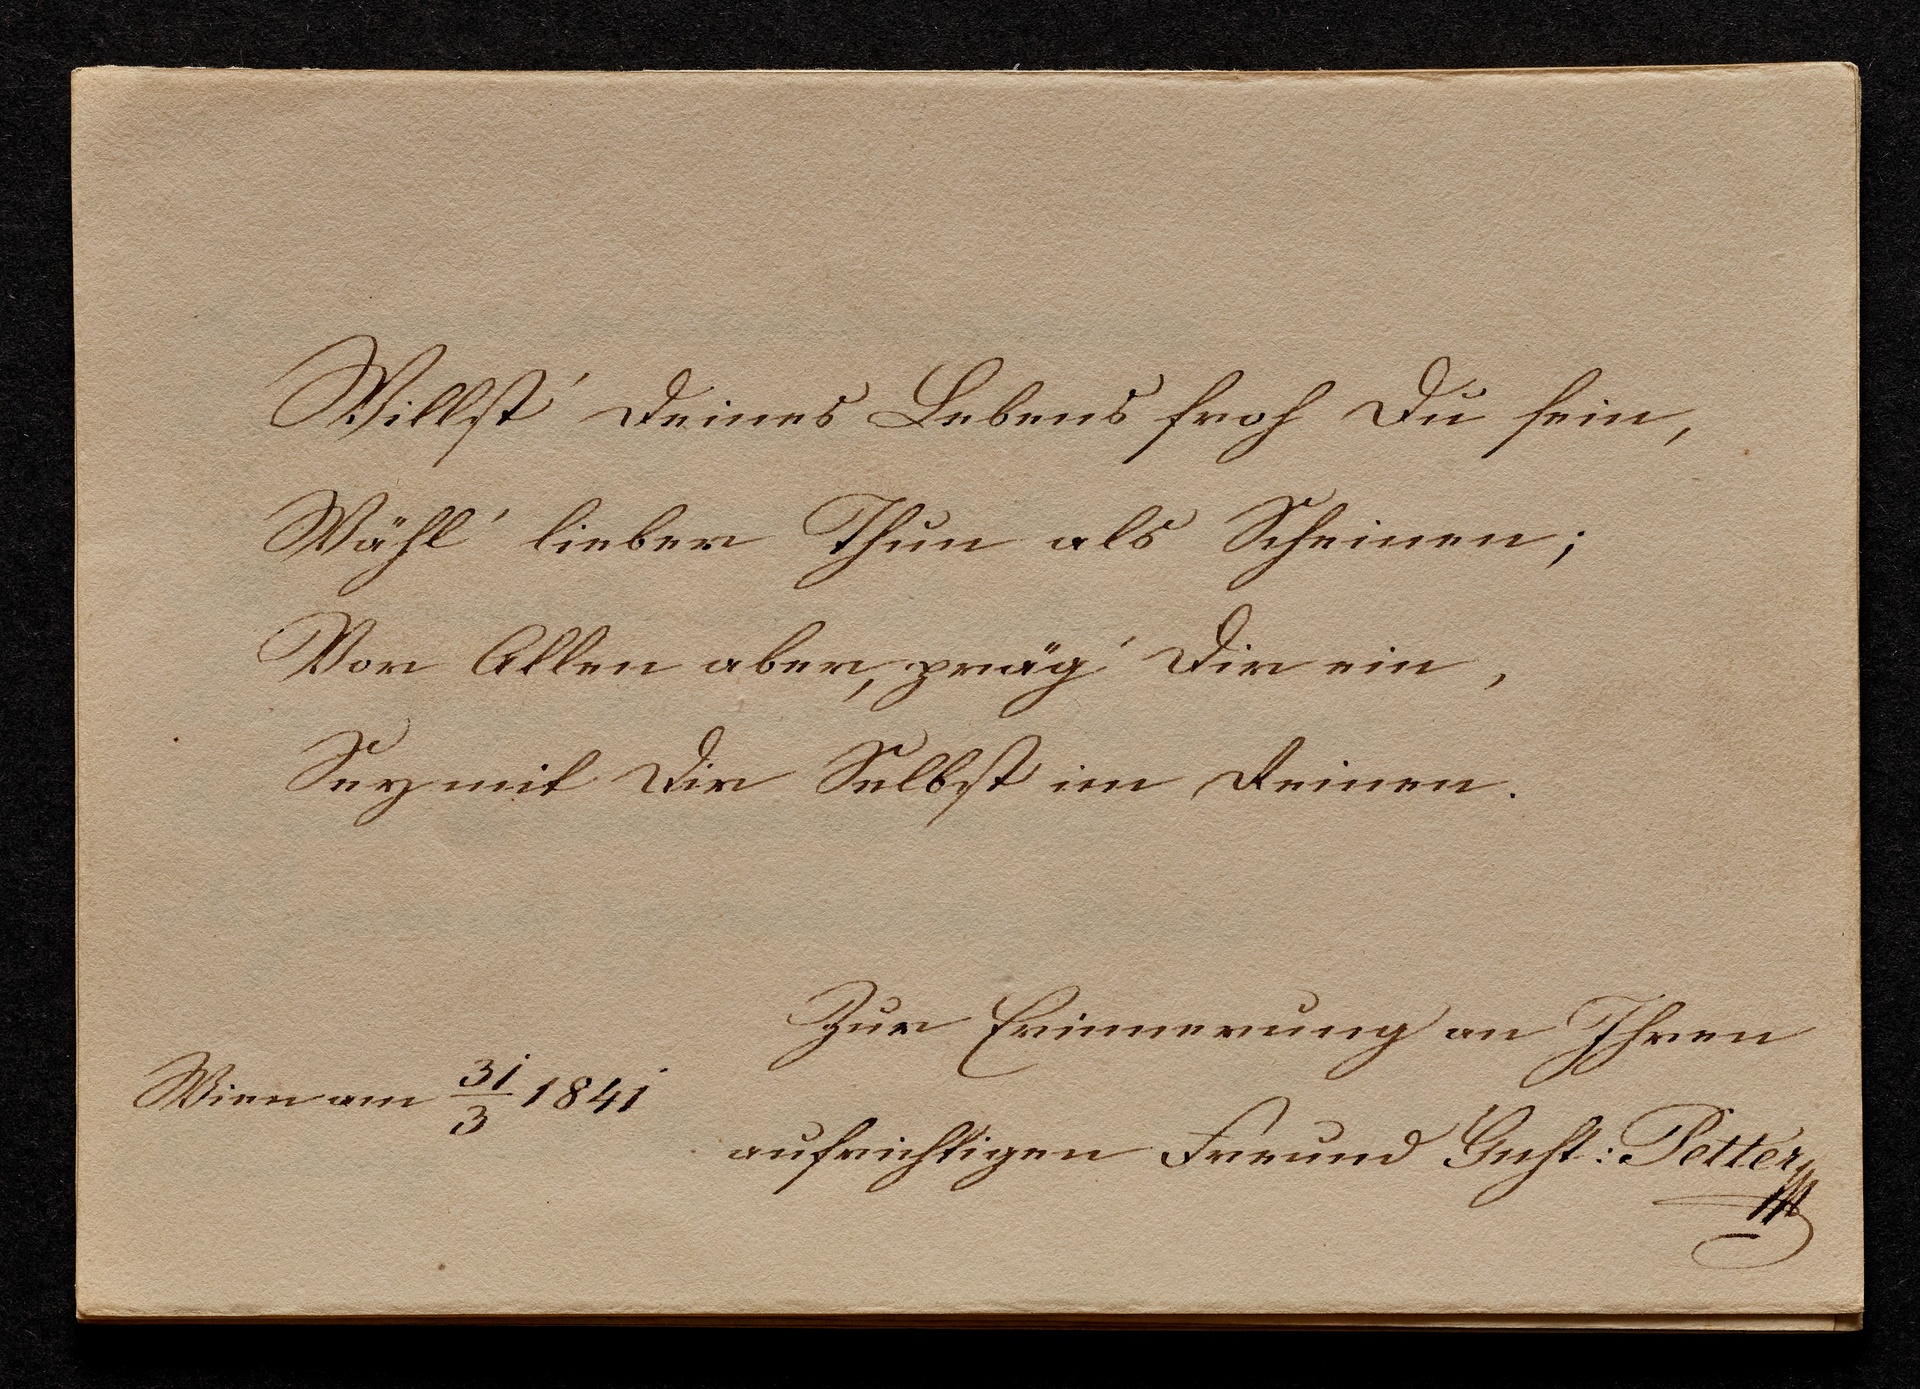 Willst' Deines Lebens froh Du sein,
Wähl' lieber Thun als Scheinen;
Vor Allen aber, präg' Dir ein,
Sey mit Dir Selbst im Reinen.
Zur Erinnerung an Ihren
Wien am 31/3 1841
aufrichtigen Freund Gust: Petter